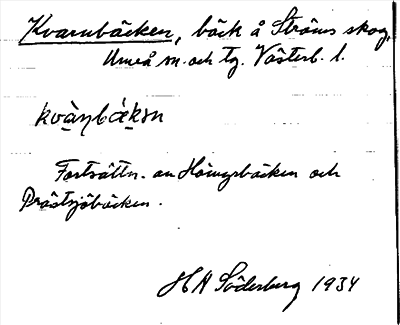 Kvarnbäcken, bäck å Ströms skog,
Umeå sn. och tg. Västerb. l.
kvὰη̣bάkən
Fortsättn. av Hömyrbäcken och
Prästsjöbäcken.
H A Söderberg 1934